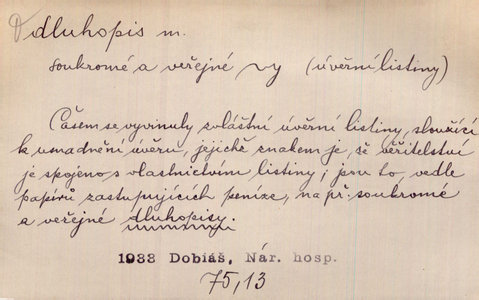 dluhopis m.
soukromé a veřejné ~y (úvěrní listiny)
Časem se vyvinuly zvláštní úvěrní listiny, sloužící
k usnadnění úvěru, jejichž znakem je, že věřitelství
je spojeno s vlastnictvím listiny; jsou to, vedle
papírů zastupujících peníze, na př. soukromé
a veřejné dluhopisy.
1933 Dobiáš, Nár. hosp.
75,13